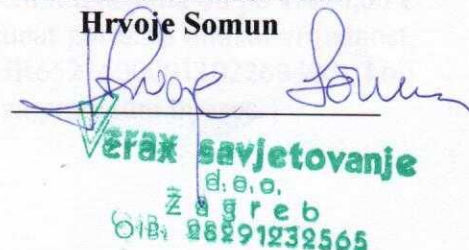 Hrvoje Somun
Hrvoje Somun
Verax savjetovanje
d.o.o.
Zagreb
OIB: 28291232565